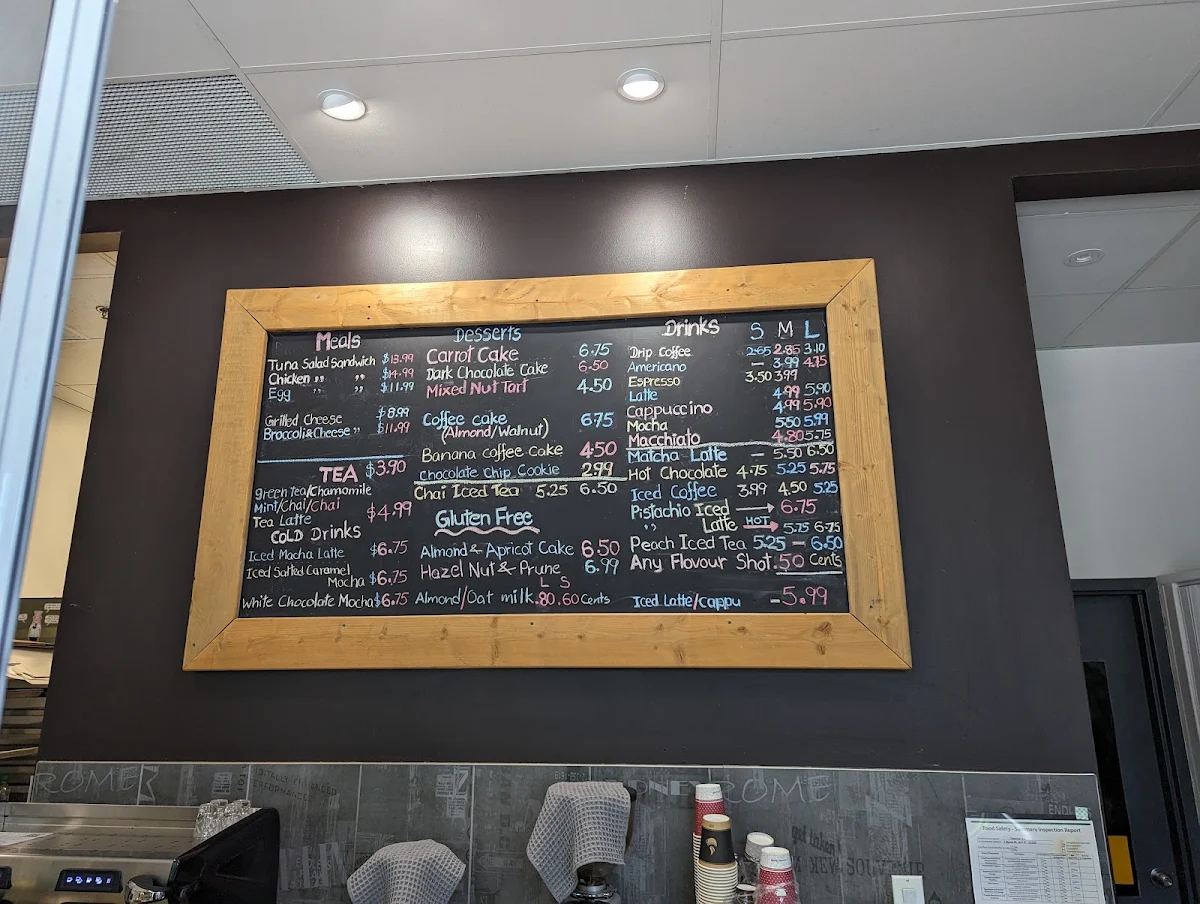 Meals
Tuna Salad Sandwich $13.99
Chicken " " $14.99
Egg " " $11.99
Grilled Cheese $8.99
Broccoli & Cheese " $11.99
TEA $3.90
green Tea/Chamomile
Mint/Chai/Chai
Tea Latte $4.99
COLD Drinks
Iced Mocha Latte $6.75
Iced Salted Caramel
Mocha $6.75
White Chocolate Mocha $6.75
Desserts
Carrot Cake 6.75
Dark Chocolate Cake 6.50
Mixed Nut Tart 4.50
Coffee cake 6.75
(Almond/Walnut)
Banana coffee Cake 4.50
chocolate chip Cookie 2.99
Chai Iced Tea 5.25 6.50
Gluten Free
Almond & Apricot Cake 6.50
Hazel Nut & Prune 6.99
L S
Almond/Oat milk .80 .60 Cents
Drinks S M L
Drip Coffee 2.65 2.85 3.10
Americano — 3.99 4.75
Espresso 3.50 3.99
Latte 4.99 5.90
Cappuccino 4.99 5.90
Mocha 5.50 5.99
Macchiato 4.80 5.75
Matcha Latte — 5.50 6.50
Hot Chocolate 4.75 5.25 5.75
Iced Coffee 3.99 4.50 5.25
Pistachio Iced → 6.75
" Latte HOT → 5.75 6.75
Peach Iced Tea 5.25 — 6.50
Any Flavour Shot .50 Cents
Iced Latte/cappu -5.99
ROME
PERFORMANCE
ROME
Food Safety - Summary Inspection Report